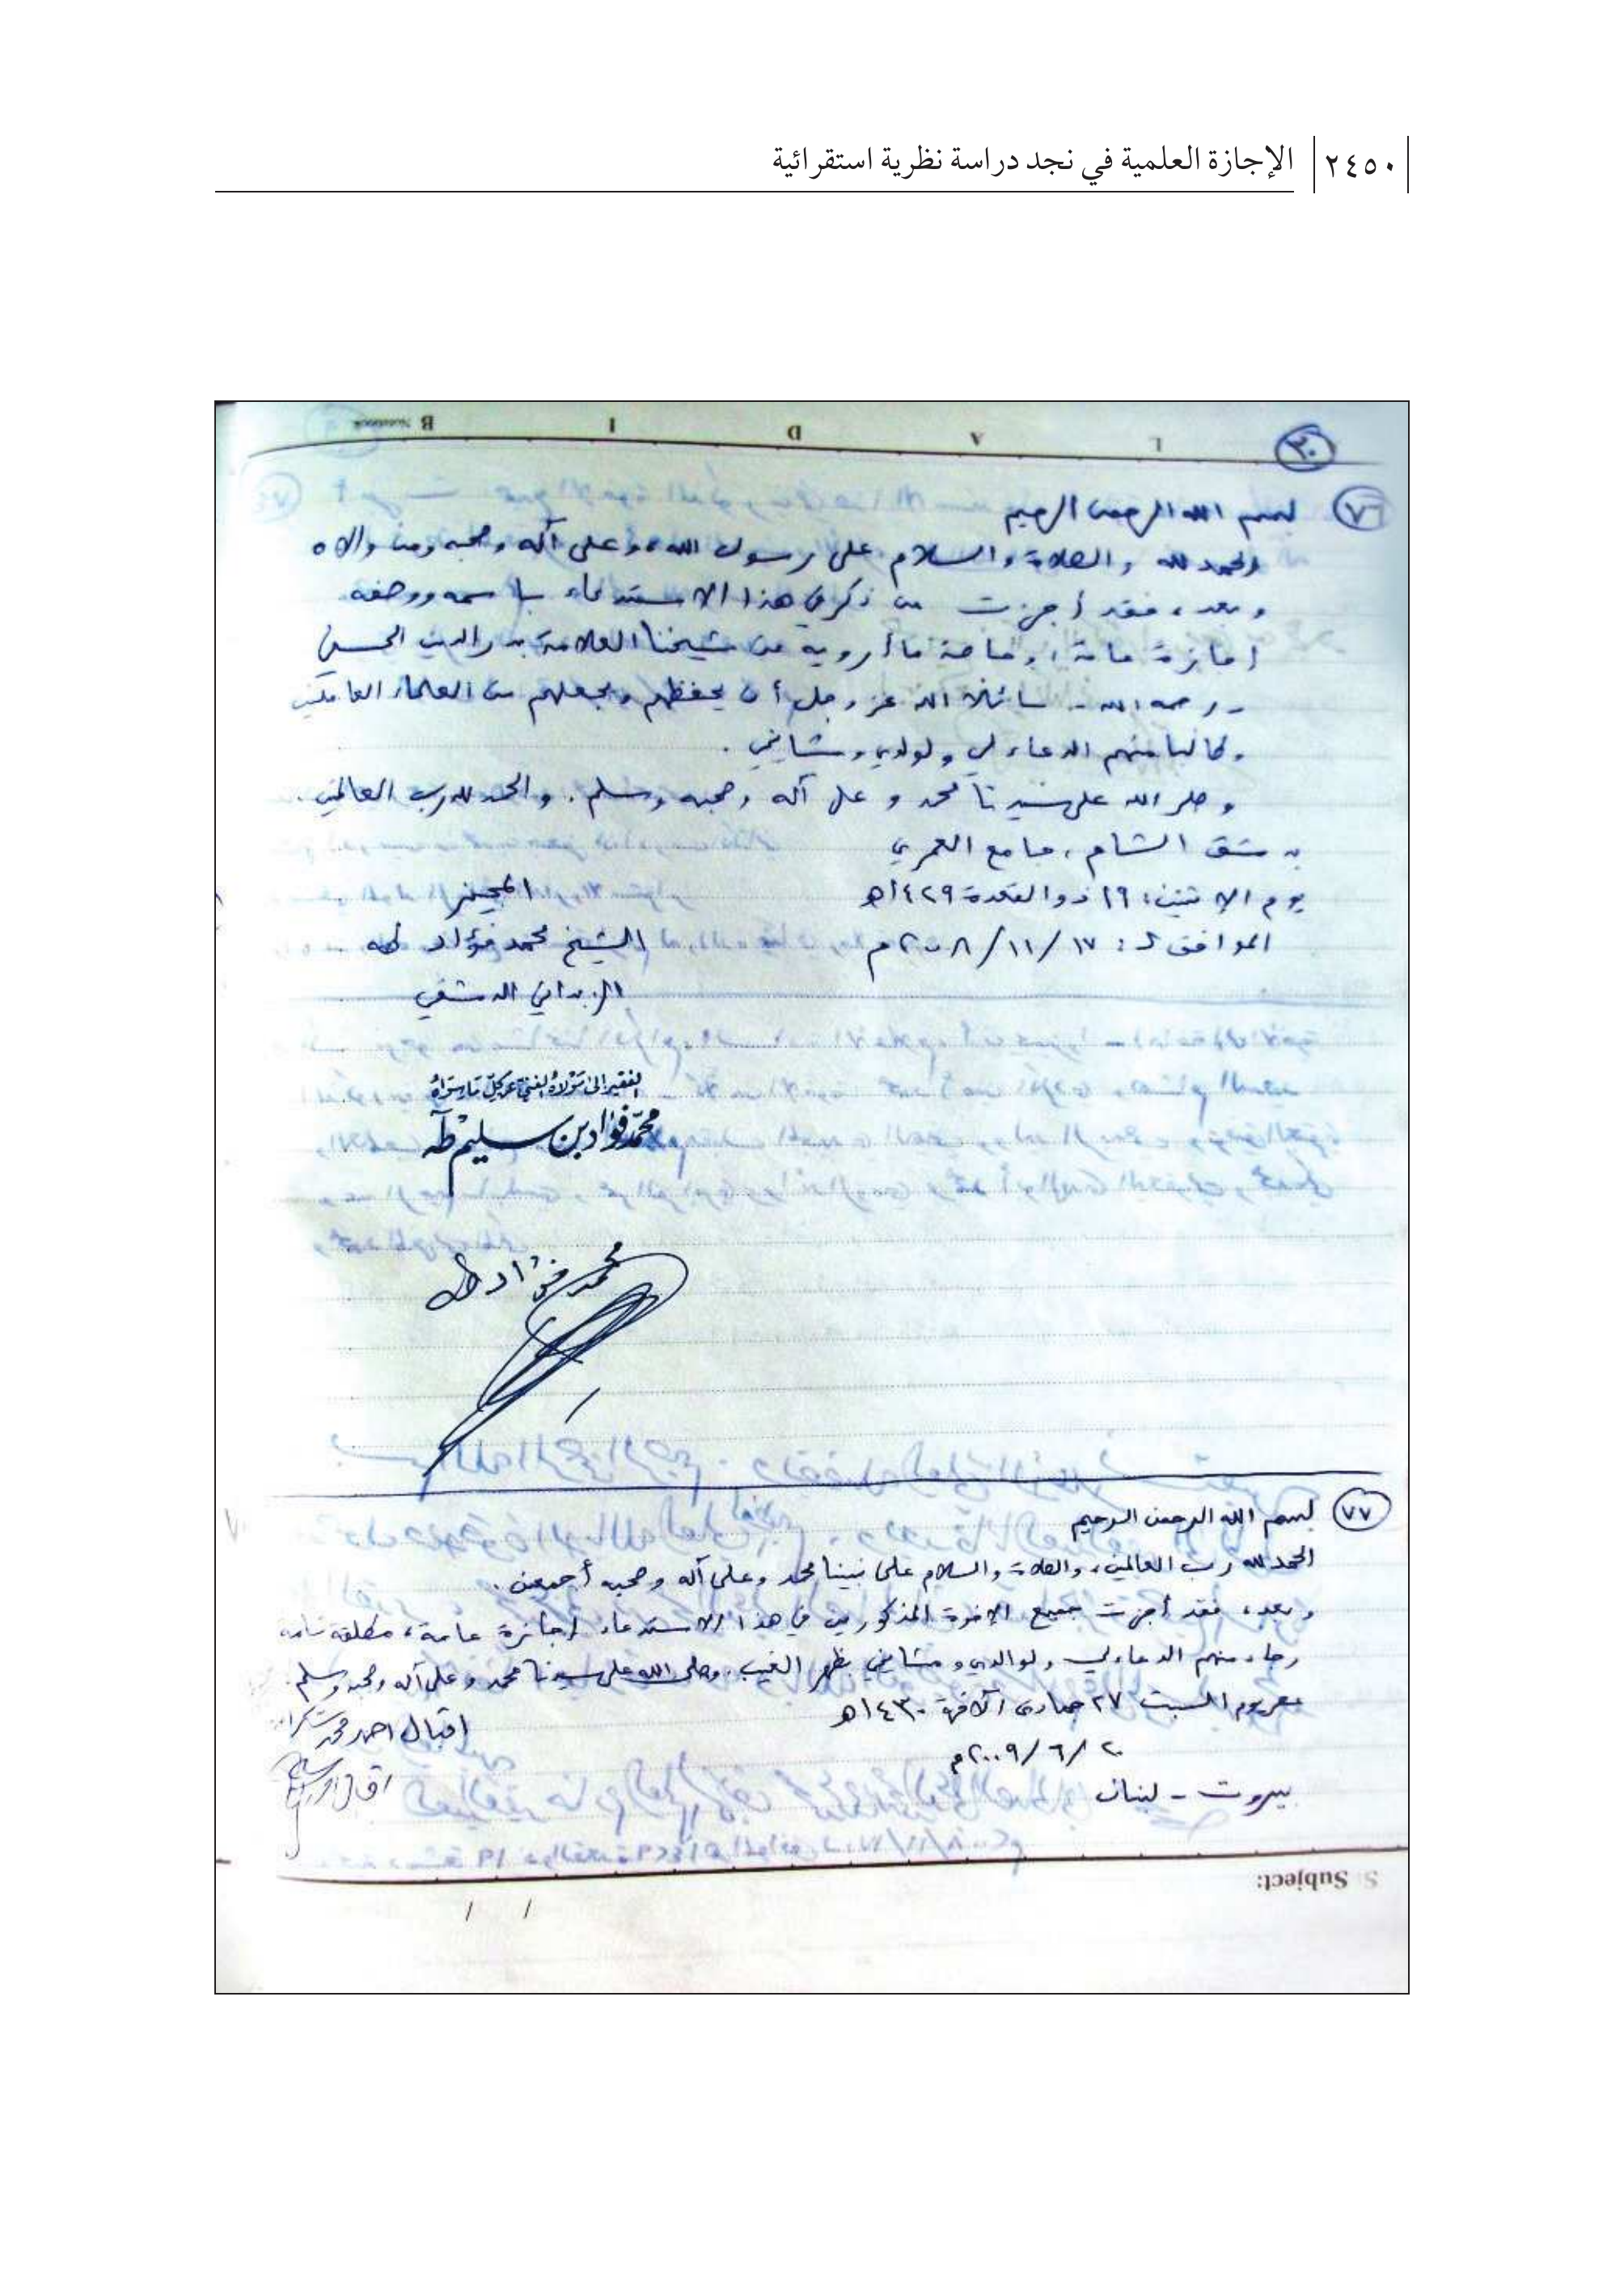 ٢٤٥٠ الإجازة العلمية في نجد دراسة نظرية استقرائية
B Notebook I D A L
٣٠
٧٦ بسم الله الرحمن الرحيم
الحمد لله والصلاة والسلام على رسول الله، وعلى آله وصحبه ومن والاه
وبعد، فقد أجزت من ذكر في هذا الاستدعاء باسمه ووصفه
إجازة عامة، وخاصة ما أرويه عن شيخنا العلامة بدر الدين الحسني
- رحمه الله - سائلا الله عز وجل أن يحفظهم ويجعلهم من العلماء العاملين
وطالبا منهم الدعاء لي ولوالدي ومشايخي.
وصلى الله على سيدنا محمد وعلى آله وصحبه وسلم. والحمد لله رب العالمين.
بدمشق الشام، جامع العمري
يوم الاثنين: ١٩ ذو القعدة ١٤٢٩هـ المجيز
الموافق لـ: ١٧/١١/٢٠٠٨م الشيخ محمد فؤاد طه
الزبداني الدمشقي
الفقير إلى مولاه الغني عن كل ما سواه
محمد فؤاد بن سليم طه
محمد فؤاد طه
٧٧ بسم الله الرحمن الرحيم
الحمد لله رب العالمين، والصلاة والسلام على نبينا محمد وعلى آله وصحبه أجمعين.
وبعد، فقد أجزت جميع الإخوة المذكورين في هذا الاستدعاء إجازة عامة، مطلقة تامة
رجاء منهم الدعاء لي ولوالدي ومشايخي بظهر الغيب. وصلى الله على سيدنا محمد وعلى آله وصحبه وسلم.
عصر يوم السبت ٢٧ جمادى الآخرة ١٤٣٠هـ إقبال أحمد محمد
٢٠/٦/٢٠٠٩م
بيروت - لبنان
Subject:
/ /